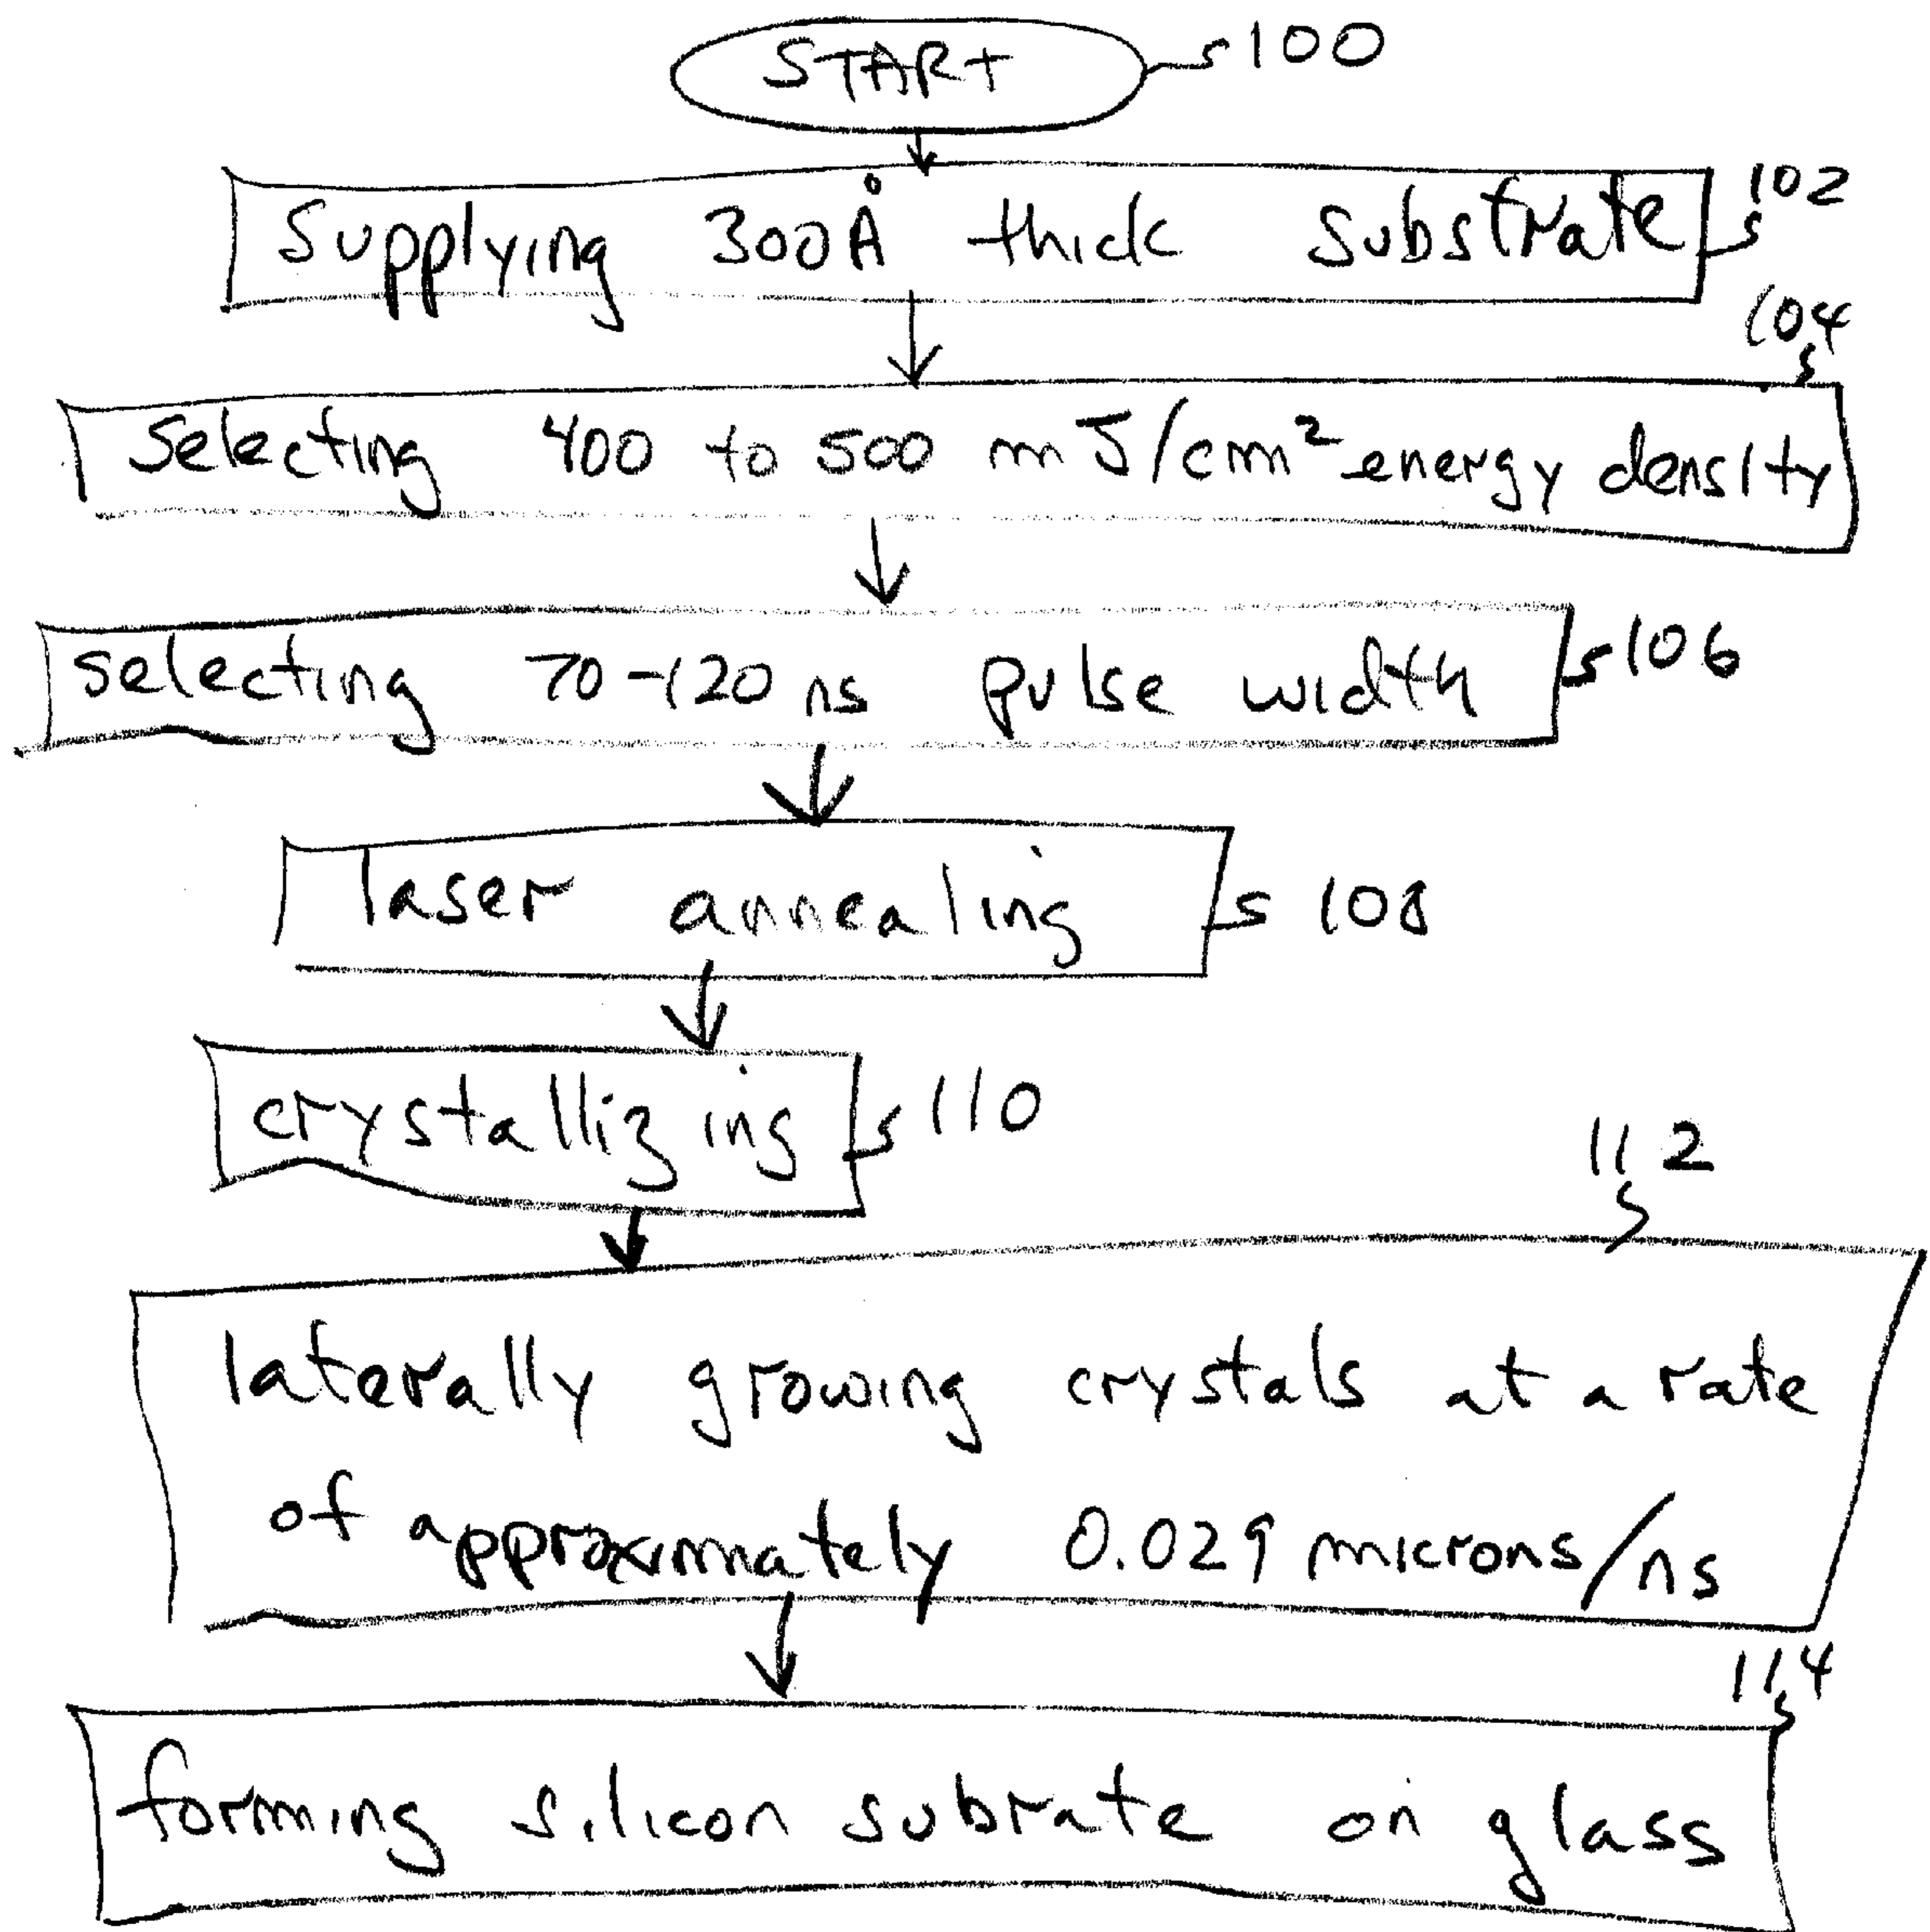 START 100
Supplying 300Å thick Substrate 102
104
Selecting 400 to 500 mJ/cm² energy density
selecting 70-120 ns pulse width 106
laser annealing 108
crystallizing 110
112
laterally growing crystals at a rate
of approximately 0.029 microns/ns
114
forming silicon subrate on glass